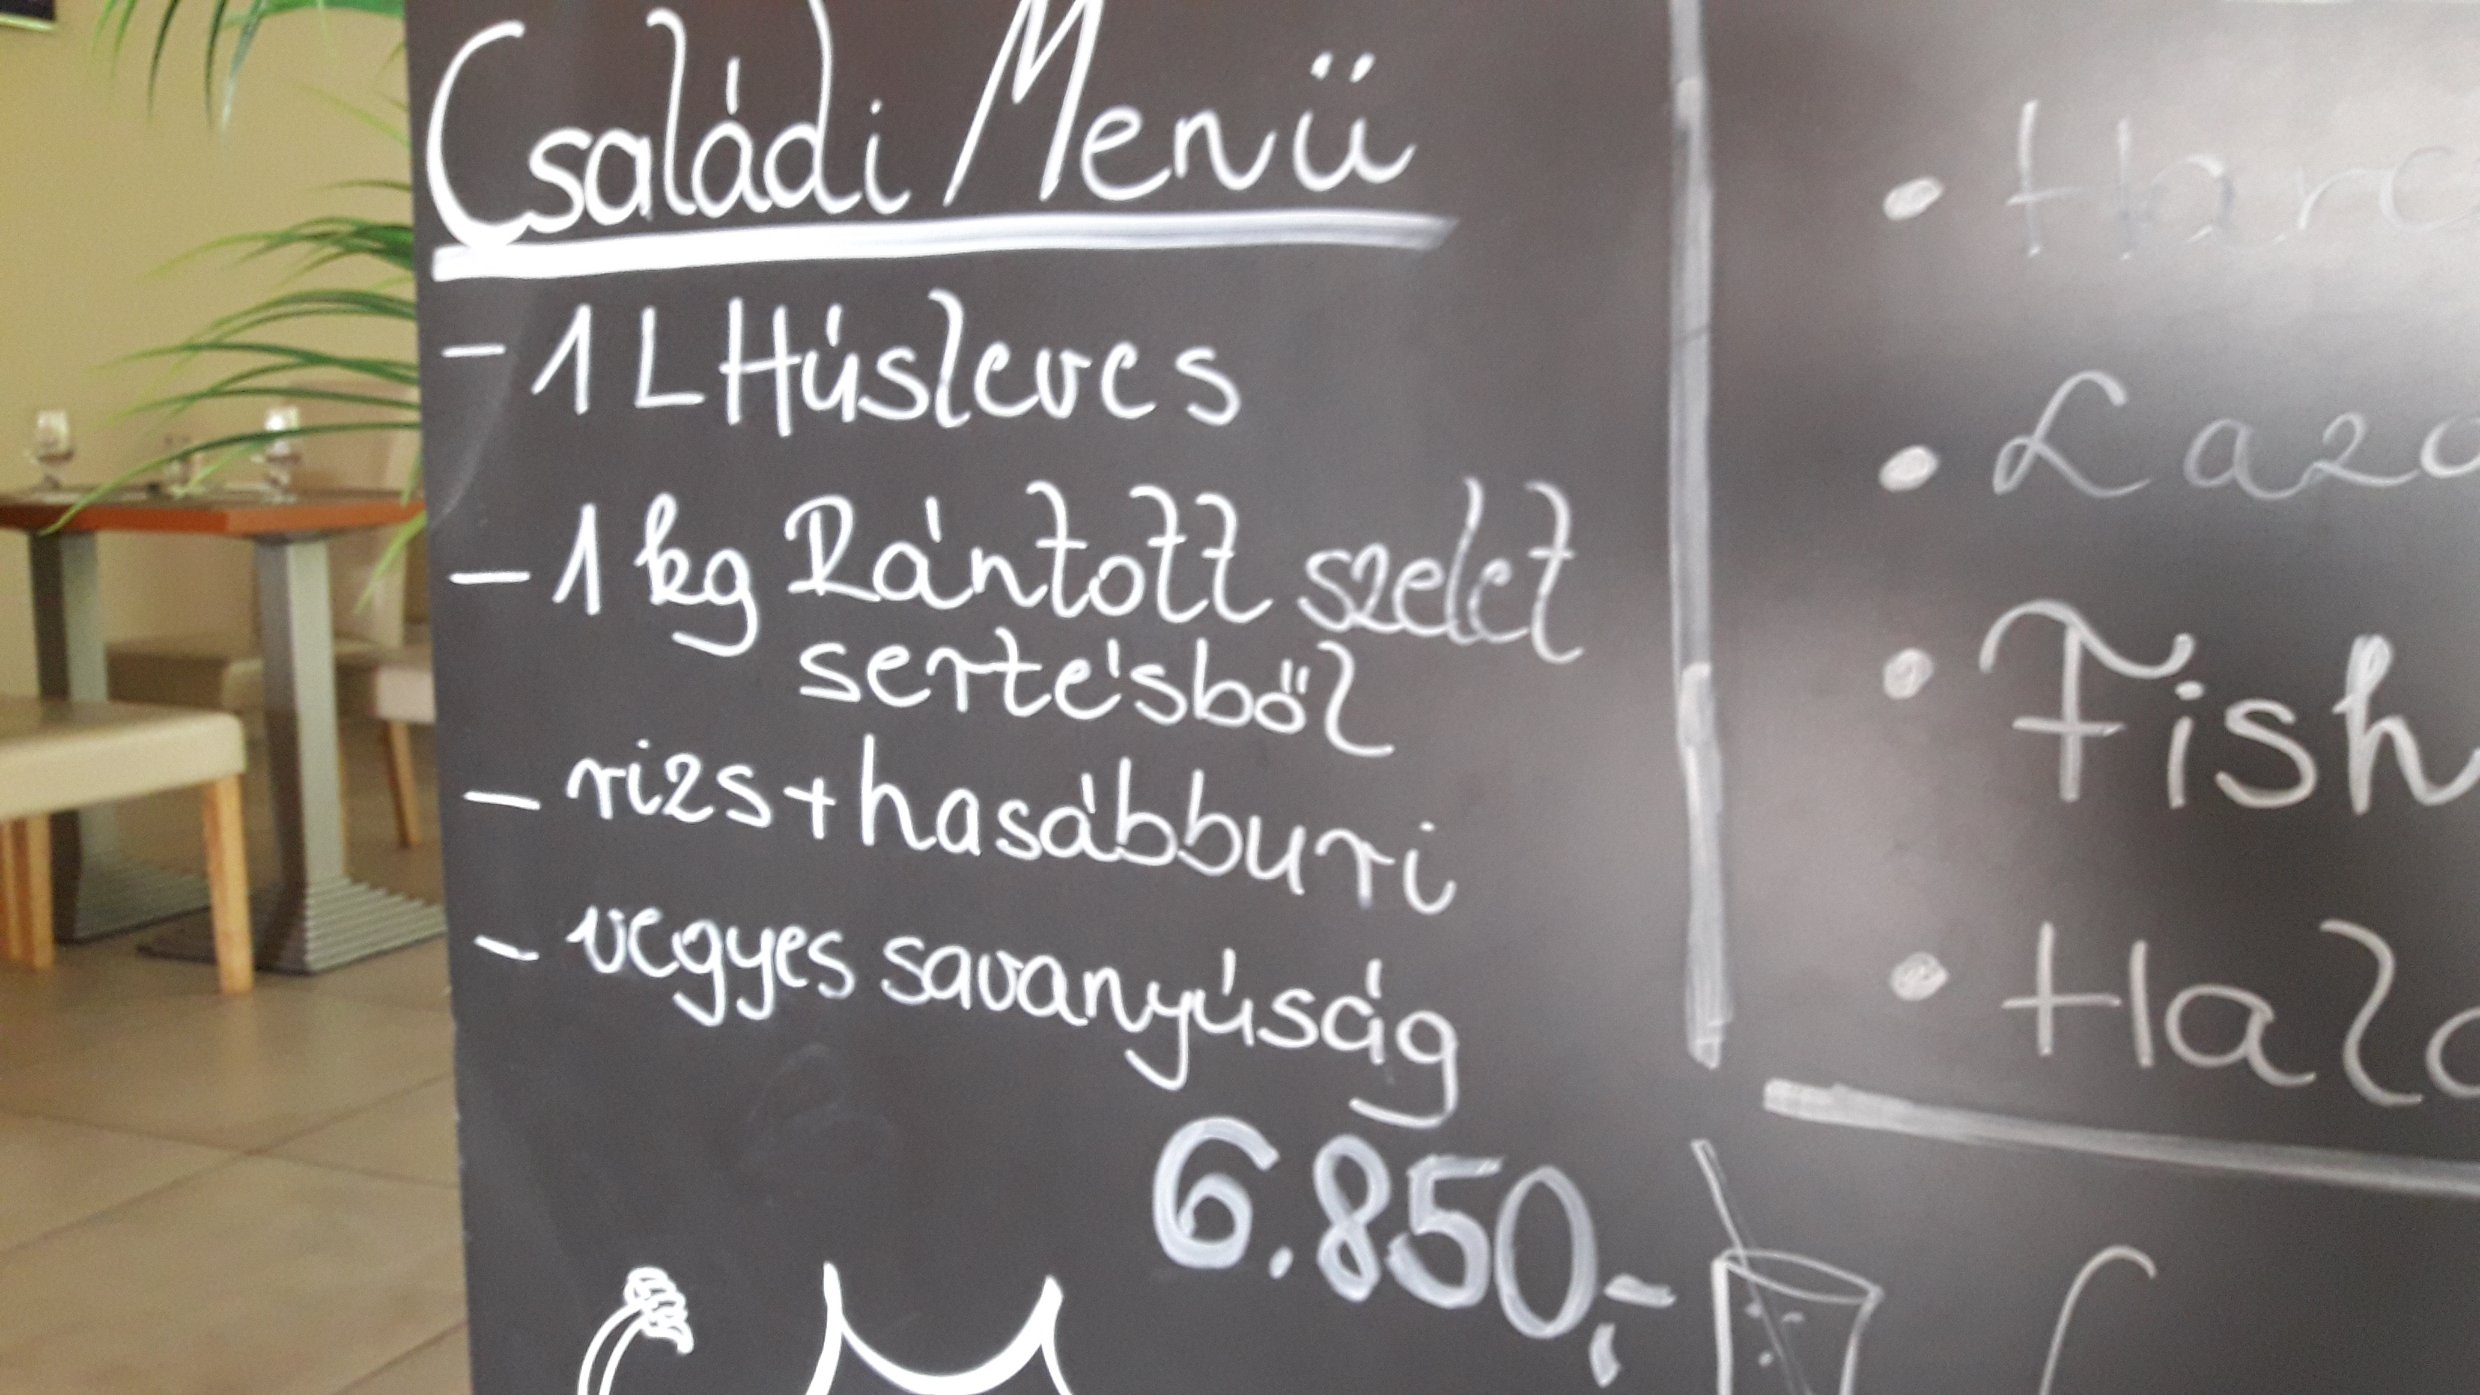 Családi Menü
- 1 L Húsleves
- 1 kg Rántott szelet
sertésből
- rizs + hasábburi
- vegyes savanyúság
6.850,-
• Fish